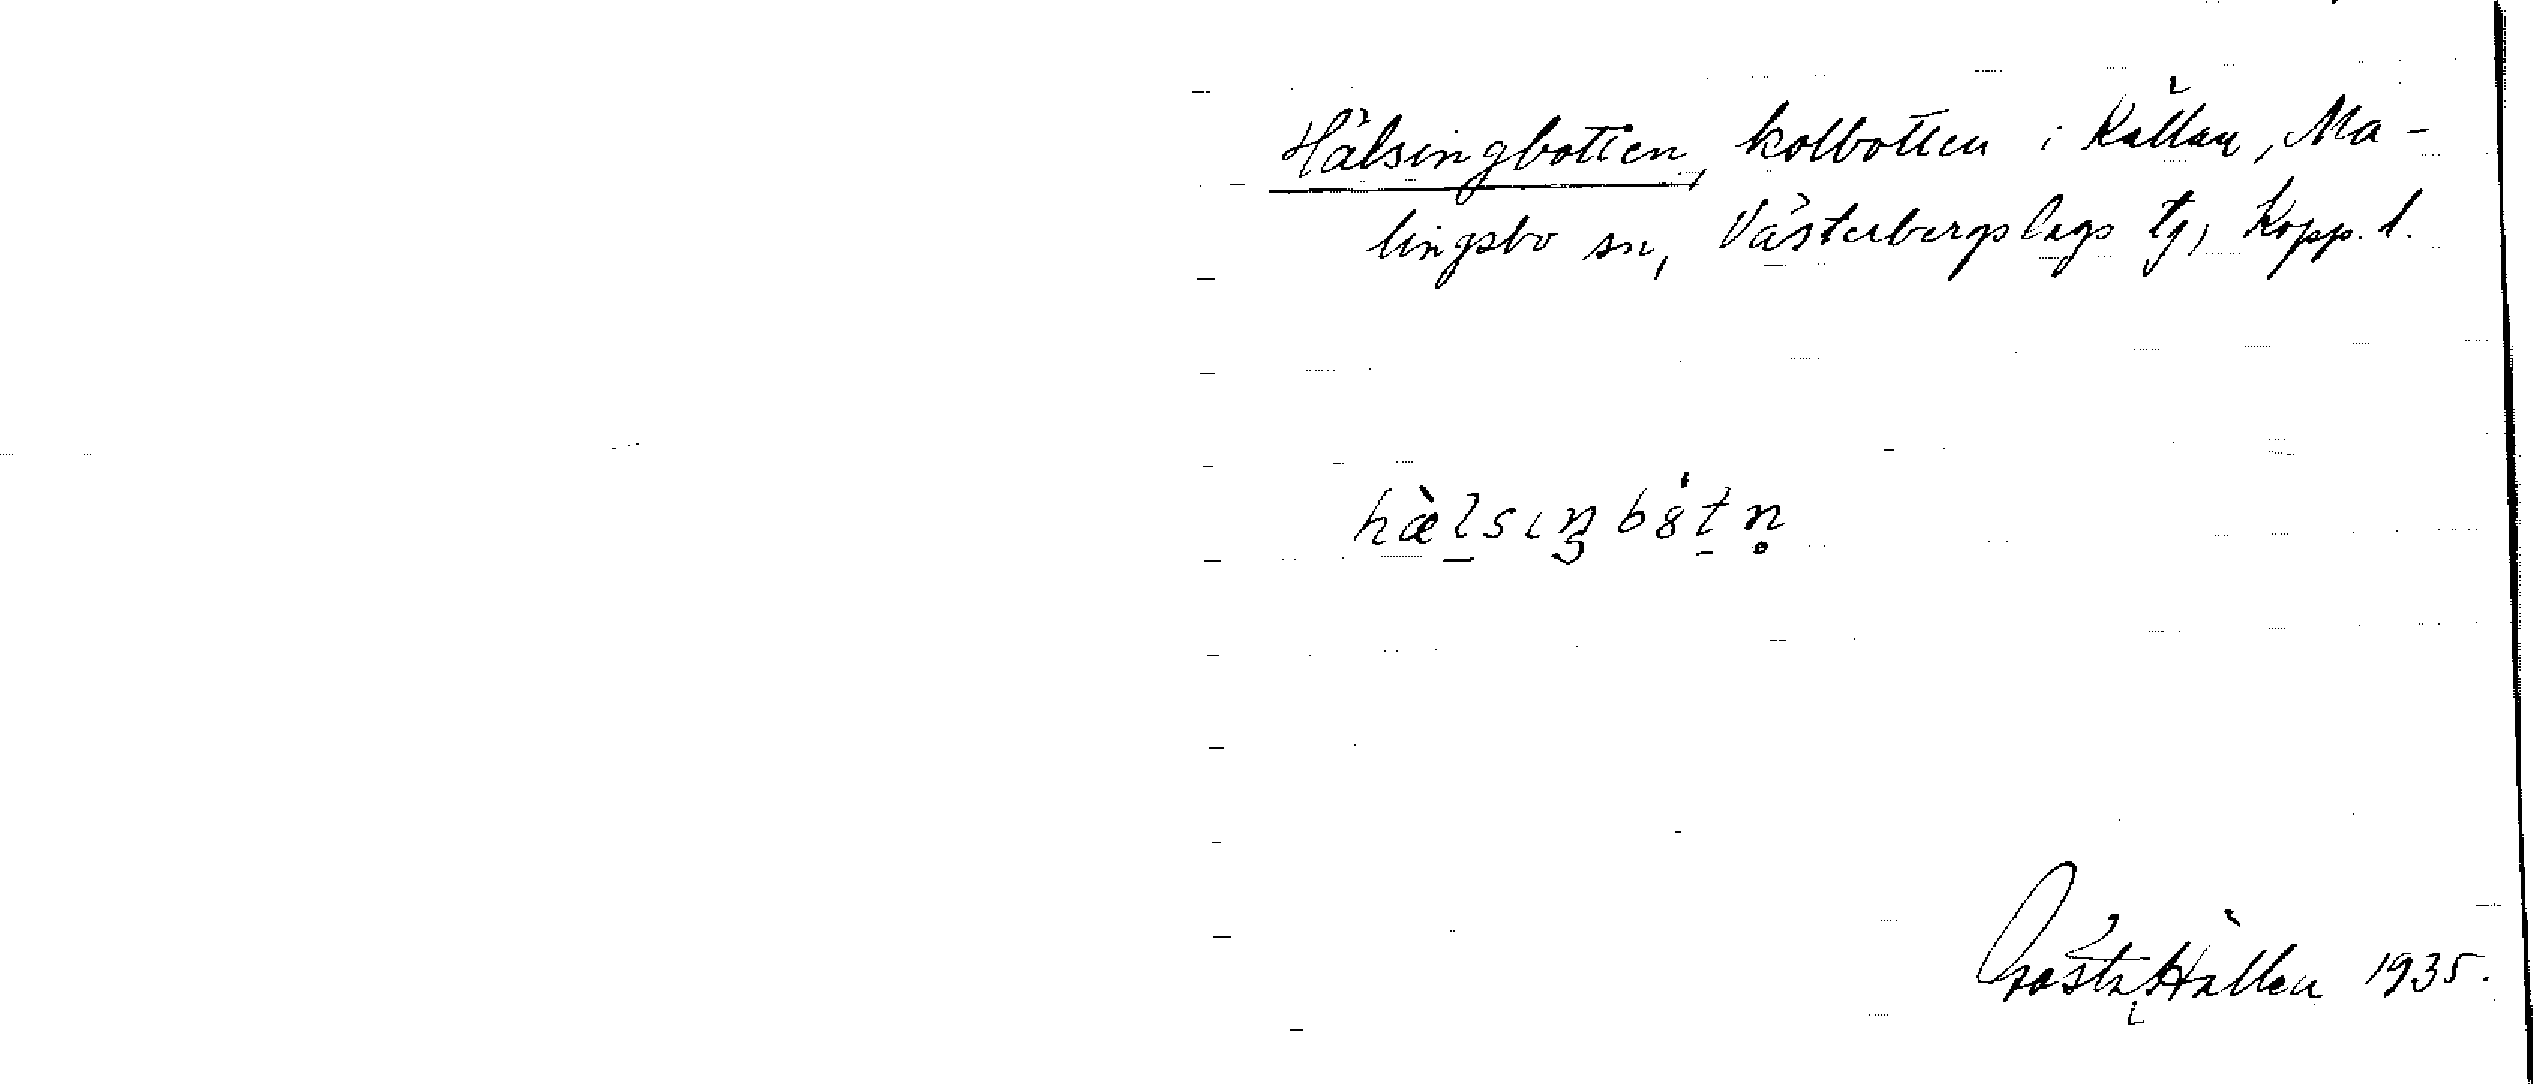 Hälsingbotten, kolbotten i Källan, Ma-
lingsbo sn, Västerbergslags tg, Kopp. l.
hæ̀l̠sıŋbȯ́t̠n̥
Gösta Hällen 1935.